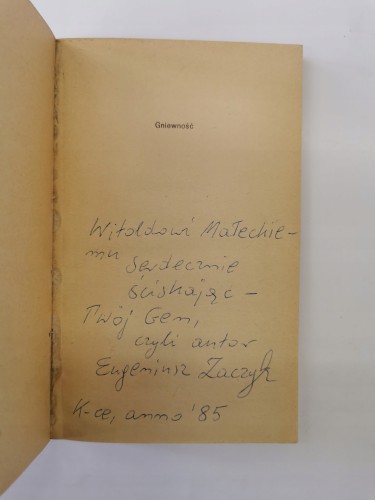 Gniewność
Witoldowi Małeckie-
mu serdecznie
ściskając –
Twój Gen,
czyli autor
Eugeniusz Zaczyk
K-ce, anno '85